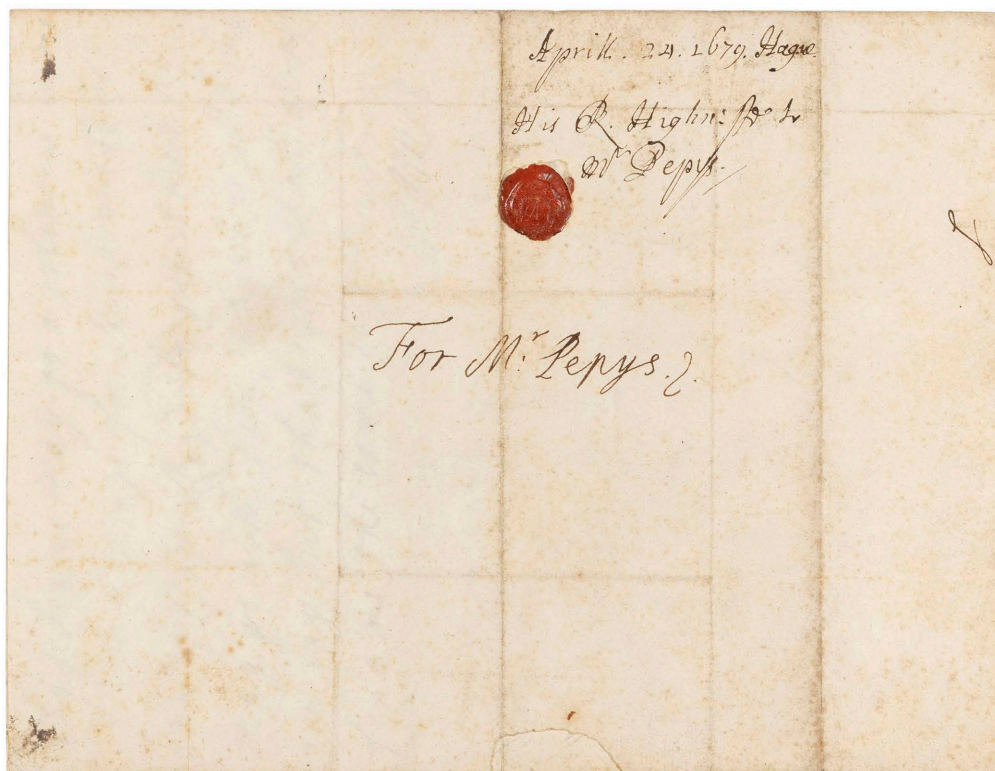 Aprill. 24. 1679. Hague.
His R. Highn:ss to
Mr Pepys.
For Mr. Pepys.